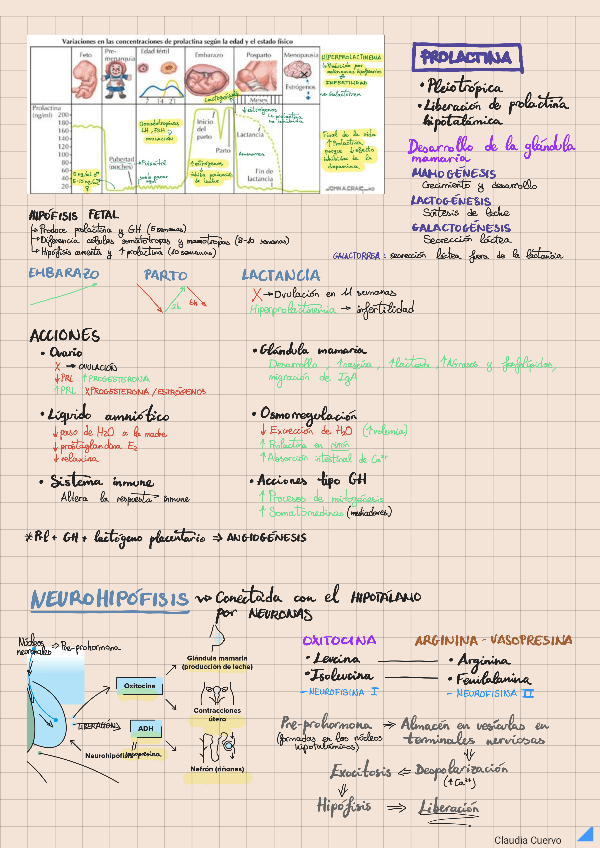 Variaciones en las concentraciones de prolactina según la edad y el estado físico
Feto
Pre-menarquia
Edad fértil
Embarazo
Posparto
Menopausia
Estrógenos
7 14 21
Meses
Prolactina
(ng/ml)
200
180
160
140
120
100
80
60
40
20
Pubertad
(noches)
Inicio
del
parto
Parto
Lactancia
Fin de
lactancia
HIPERPROLACTINEMIA
INFERTILIDAD
LH, FSH
ovulación
Final de la vida
↑ Prolactina
dopamina.
PROLACTINA
• Pleiotrópica
• Liberación de prolactina
hipotalámica
Desarrollo de la glándula
mamaria
MAMOGÉNESIS
Crecimiento y desarrollo
LACTOGÉNESIS
Síntesis de leche
GALACTOGÉNESIS
Secreción láctea
GALACTORREA: secreción láctea fuera de la lactancia
HIPÓFISIS FETAL
→ Produce prolactina y GH (5 semanas)
→ Diferencia células somatotropas y mamotropas (8-10 semanas)
→ Hipófisis aumenta y ↑ prolactina (10 semanas)
EMBARAZO
PARTO
LACTANCIA
X → Ovulación en 11 semanas
Hiperprolactinemia → infertilidad
ACCIONES
• Ovario
X → OVULACIÓN
↓PRL ↑PROGESTERONA
↑PRL X PROGESTERONA/ESTRÓGENOS
• Glándula mamaria
Desarrollo, ↑caseína, ↑lactosa, ↑Ácidos grasos y fosfolípidos,
migración de IgA
• Líquido amniótico
↓ paso de H2O a la madre
↓ prostaglandina E2
↓ relaxina
• Osmorregulación
↓ Excreción de H2O (↑volemia)
↑ Prolactina en riñón
↑ Absorción intestinal de Ca2+
• Sistema inmune
Altera la respuesta inmune
• Acciones tipo GH
↑ Procesos de mitogénesis
↑ Somatomedinas (mediadores)
*Prl + GH + lactógeno placentario ⇒ ANGIOGÉNESIS
NEUROHIPÓFISIS → Conectada con el HIPOTÁLAMO
por NEURONAS
Núcleos
neuronales ⇒ Pre-prohormona
Oxitocina
ADH
Vasopresina
Neurohipófisis
Glándula mamaria
(producción de leche)
Contracciones
útero
Nefrón (riñones)
OXITOCINA
• Leucina
• Isoleucina
- NEUROFISINA I
ARGININA - VASOPRESINA
• Arginina
• Fenilalanina
- NEUROFISINA II
Pre-prohormona ⇒ Almacén en vesículas en
(formadas en los núcleos
hipotalámicos)
terminales nerviosas
Exocitosis ⇐ Despolarización
(↑Ca2+)
Hipófisis ⇒ Liberación
Claudia Cuervo